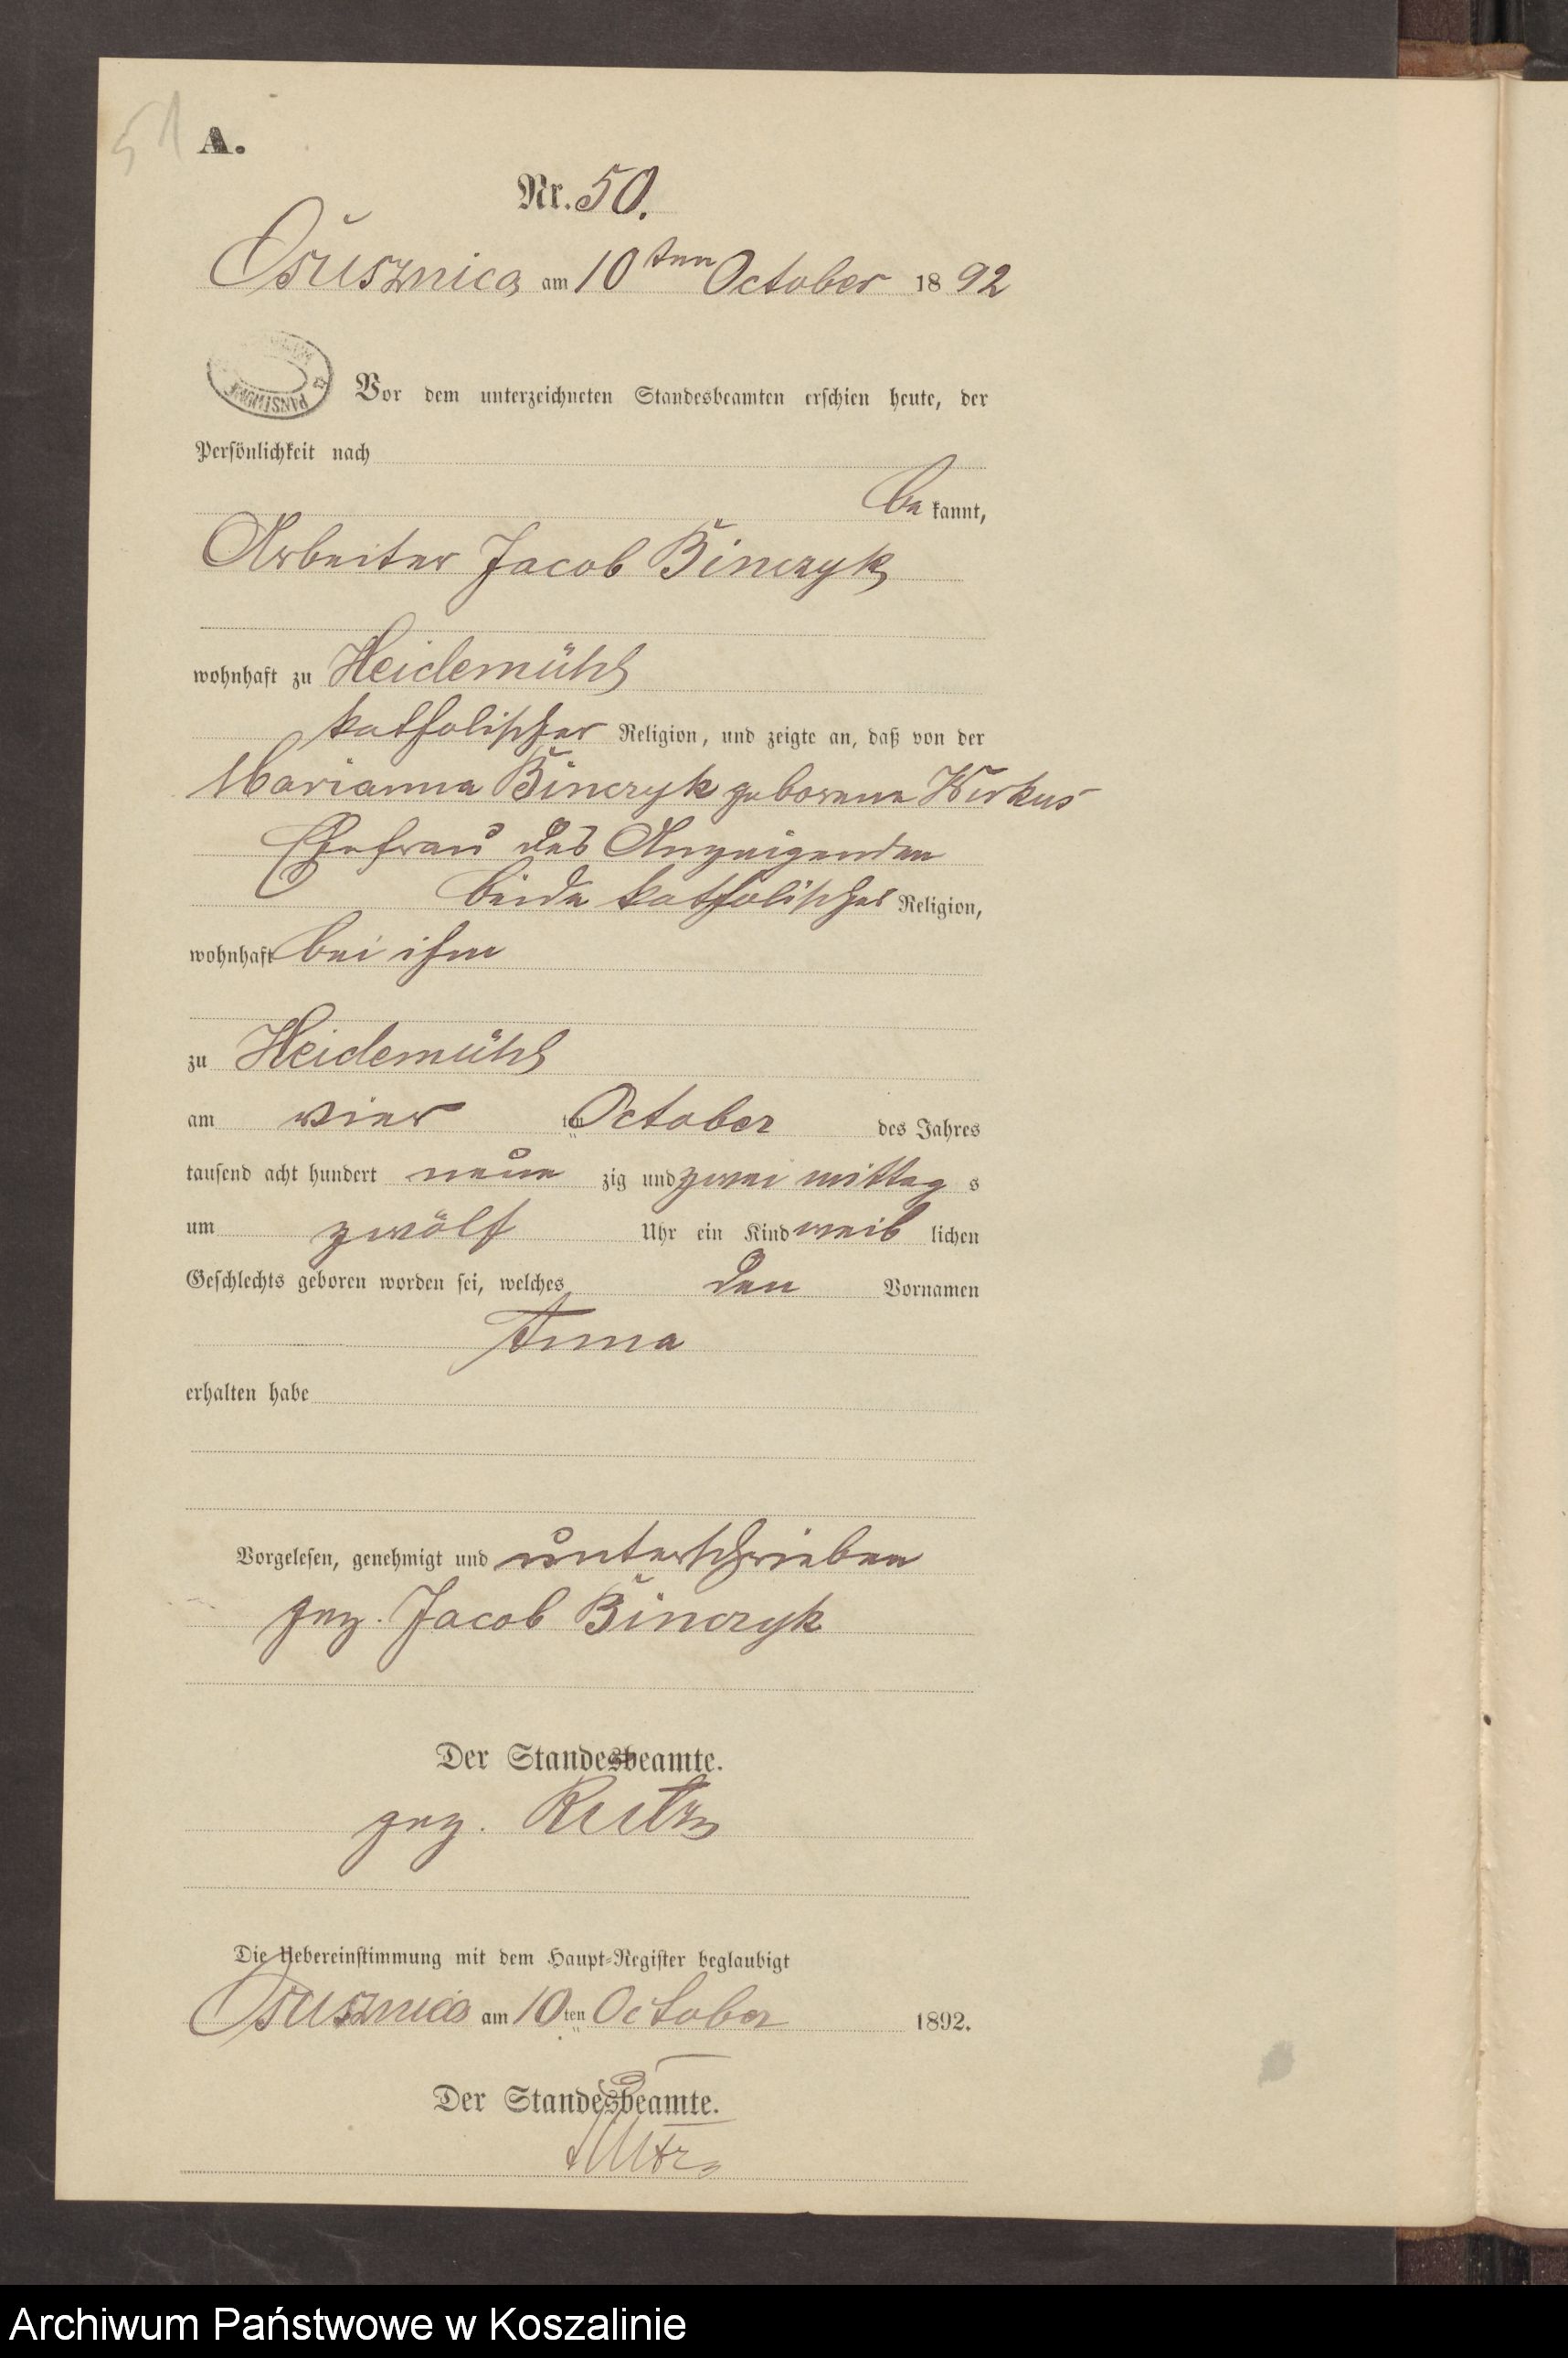 51
A.
Nr. 50.
Osusznica am 10ten October 1892
Vor dem unterzeichneten Standesbeamten erschien heute, der
Persönlichkeit nach
bekannt,
Arbeiter Jacob Binczyk
wohnhaft zu Heidemühl
katholischer Religion, und zeigte an, daß von der
Marianna Binczyk geborene Wirkus
Ehefrau des Anzeigenden
beide katholischer Religion,
wohnhaft bei ihm
zu Heidemühl
am vier ten October des Jahres
tausend acht hundert neun zig und zwei mittag s
um zwölf Uhr ein Kind weib lichen
Geschlechts geboren worden sei, welches den Vornamen
Anna
erhalten habe
Vorgelesen, genehmigt und unterschrieben
gez. Jacob Binczyk
Der Standesbeamte.
gez. Rutz
Die Uebereinstimmung mit dem Haupt-Register beglaubigt
Osusznica am 10ten October 1892.
Der Standesbeamte.
Rutz
Archiwum Państwowe w Koszalinie